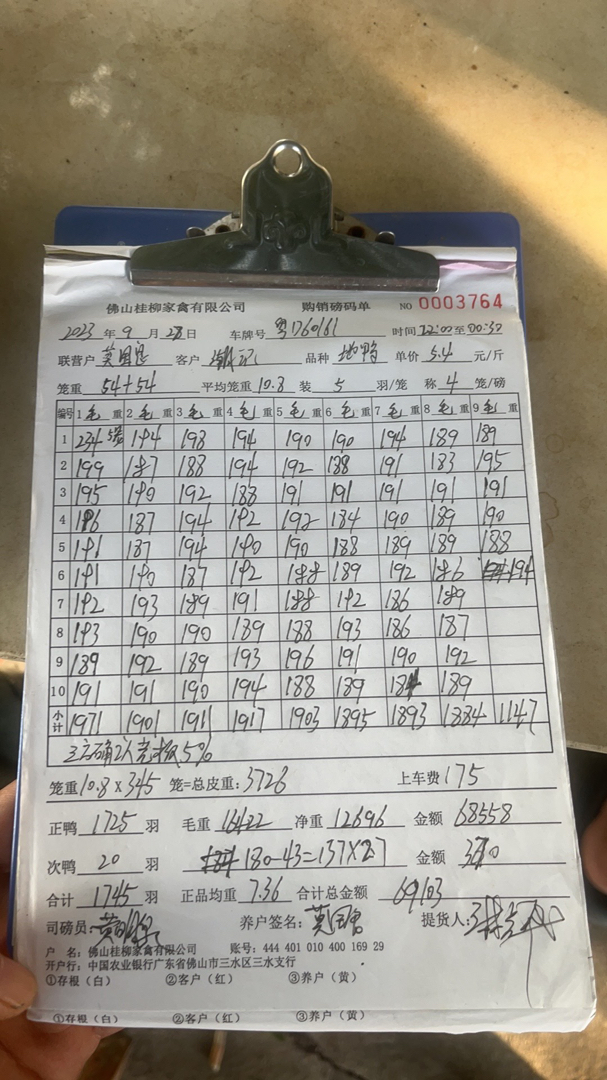 佛山桂柳家禽有限公司 购销磅码单 NO 0003764
2023 年 9 月 28 日 车牌号 粤D60161 时间 22:00 至 00:30
联营户 客户 品种 单价 5.4 元/斤
笼重 54+54 平均笼重 10.8 装 5 羽/笼 称 4 笼/磅
编号 1 毛 重 2 毛 重 3 毛 重 4 毛 重 5 毛 重 6 毛 重 7 毛 重 8 毛 重 9 毛 重
1 234 5笼 194 198 194 190 190 194 189 189
2 199 187 188 194 192 188 191 183 195
3 195 190 192 188 191 191 191 191 191
4 186 187 194 192 192 184 190 189 190
5 191 187 194 190 190 188 189 189 188
6 191 190 187 192 188 189 192 186 194
7 192 193 189 191 188 192 186 189
8 193 190 190 189 188 193 186 187
9 189 192 189 193 196 191 190 192
10 191 191 190 194 188 189 184 189
小计 1971 1901 1911 1917 1903 1895 1893 1884 1147
5%
笼重 10.8 x 345 笼=总皮重: 3726 上车费 175
正鸭 1725 羽 毛重 16422 净重 12696 金额 68558
次鸭 20 羽 180-43=137X2.7 金额
合计 1745 羽 正品均重 7.36 合计总金额 69103
司磅员: 养户签名: 提货人:
户 名: 佛山桂柳家禽有限公司 账号: 444 401 010 400 169 29
开户行: 中国农业银行广东省佛山市三水区三水支行
①存根(白) ②客户(红) ③养户(黄)
①存根(白) ②客户(红) ③养户(黄)